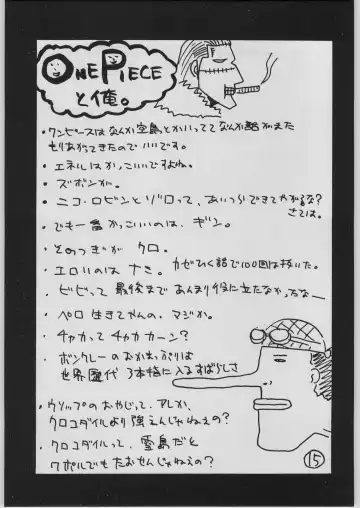 ONE PIECE
と俺。
・ワンピースはなんか空島とかいってて なんか話がまた
もりあがってきたのでいいです。
・エネルはかっこいいですよね。
・ズボンが。
・ニコ・ロビンとゾロって、あいつらできてやがるな?
さては。
・でも一番かっこいいのは、ギン。
・そのつぎが クロ。
・エロいのは ナミ。 かぜひく話で100回は抜いた。
・ビビって 最後まで あんまり役に立たなかったなー
・ペロ 生きてやんの。マジか。
・チャカって チャカ カーン?
・ボンクレーのおかまっぷりは
世界歴代 3本指に入るすばらしさ
・ウソップのおやじって、アレか、
クロコダイルより強えんじゃねえの?
・クロコダイルって、雪島だと
ワポルでもたおせんじゃねえの?
15